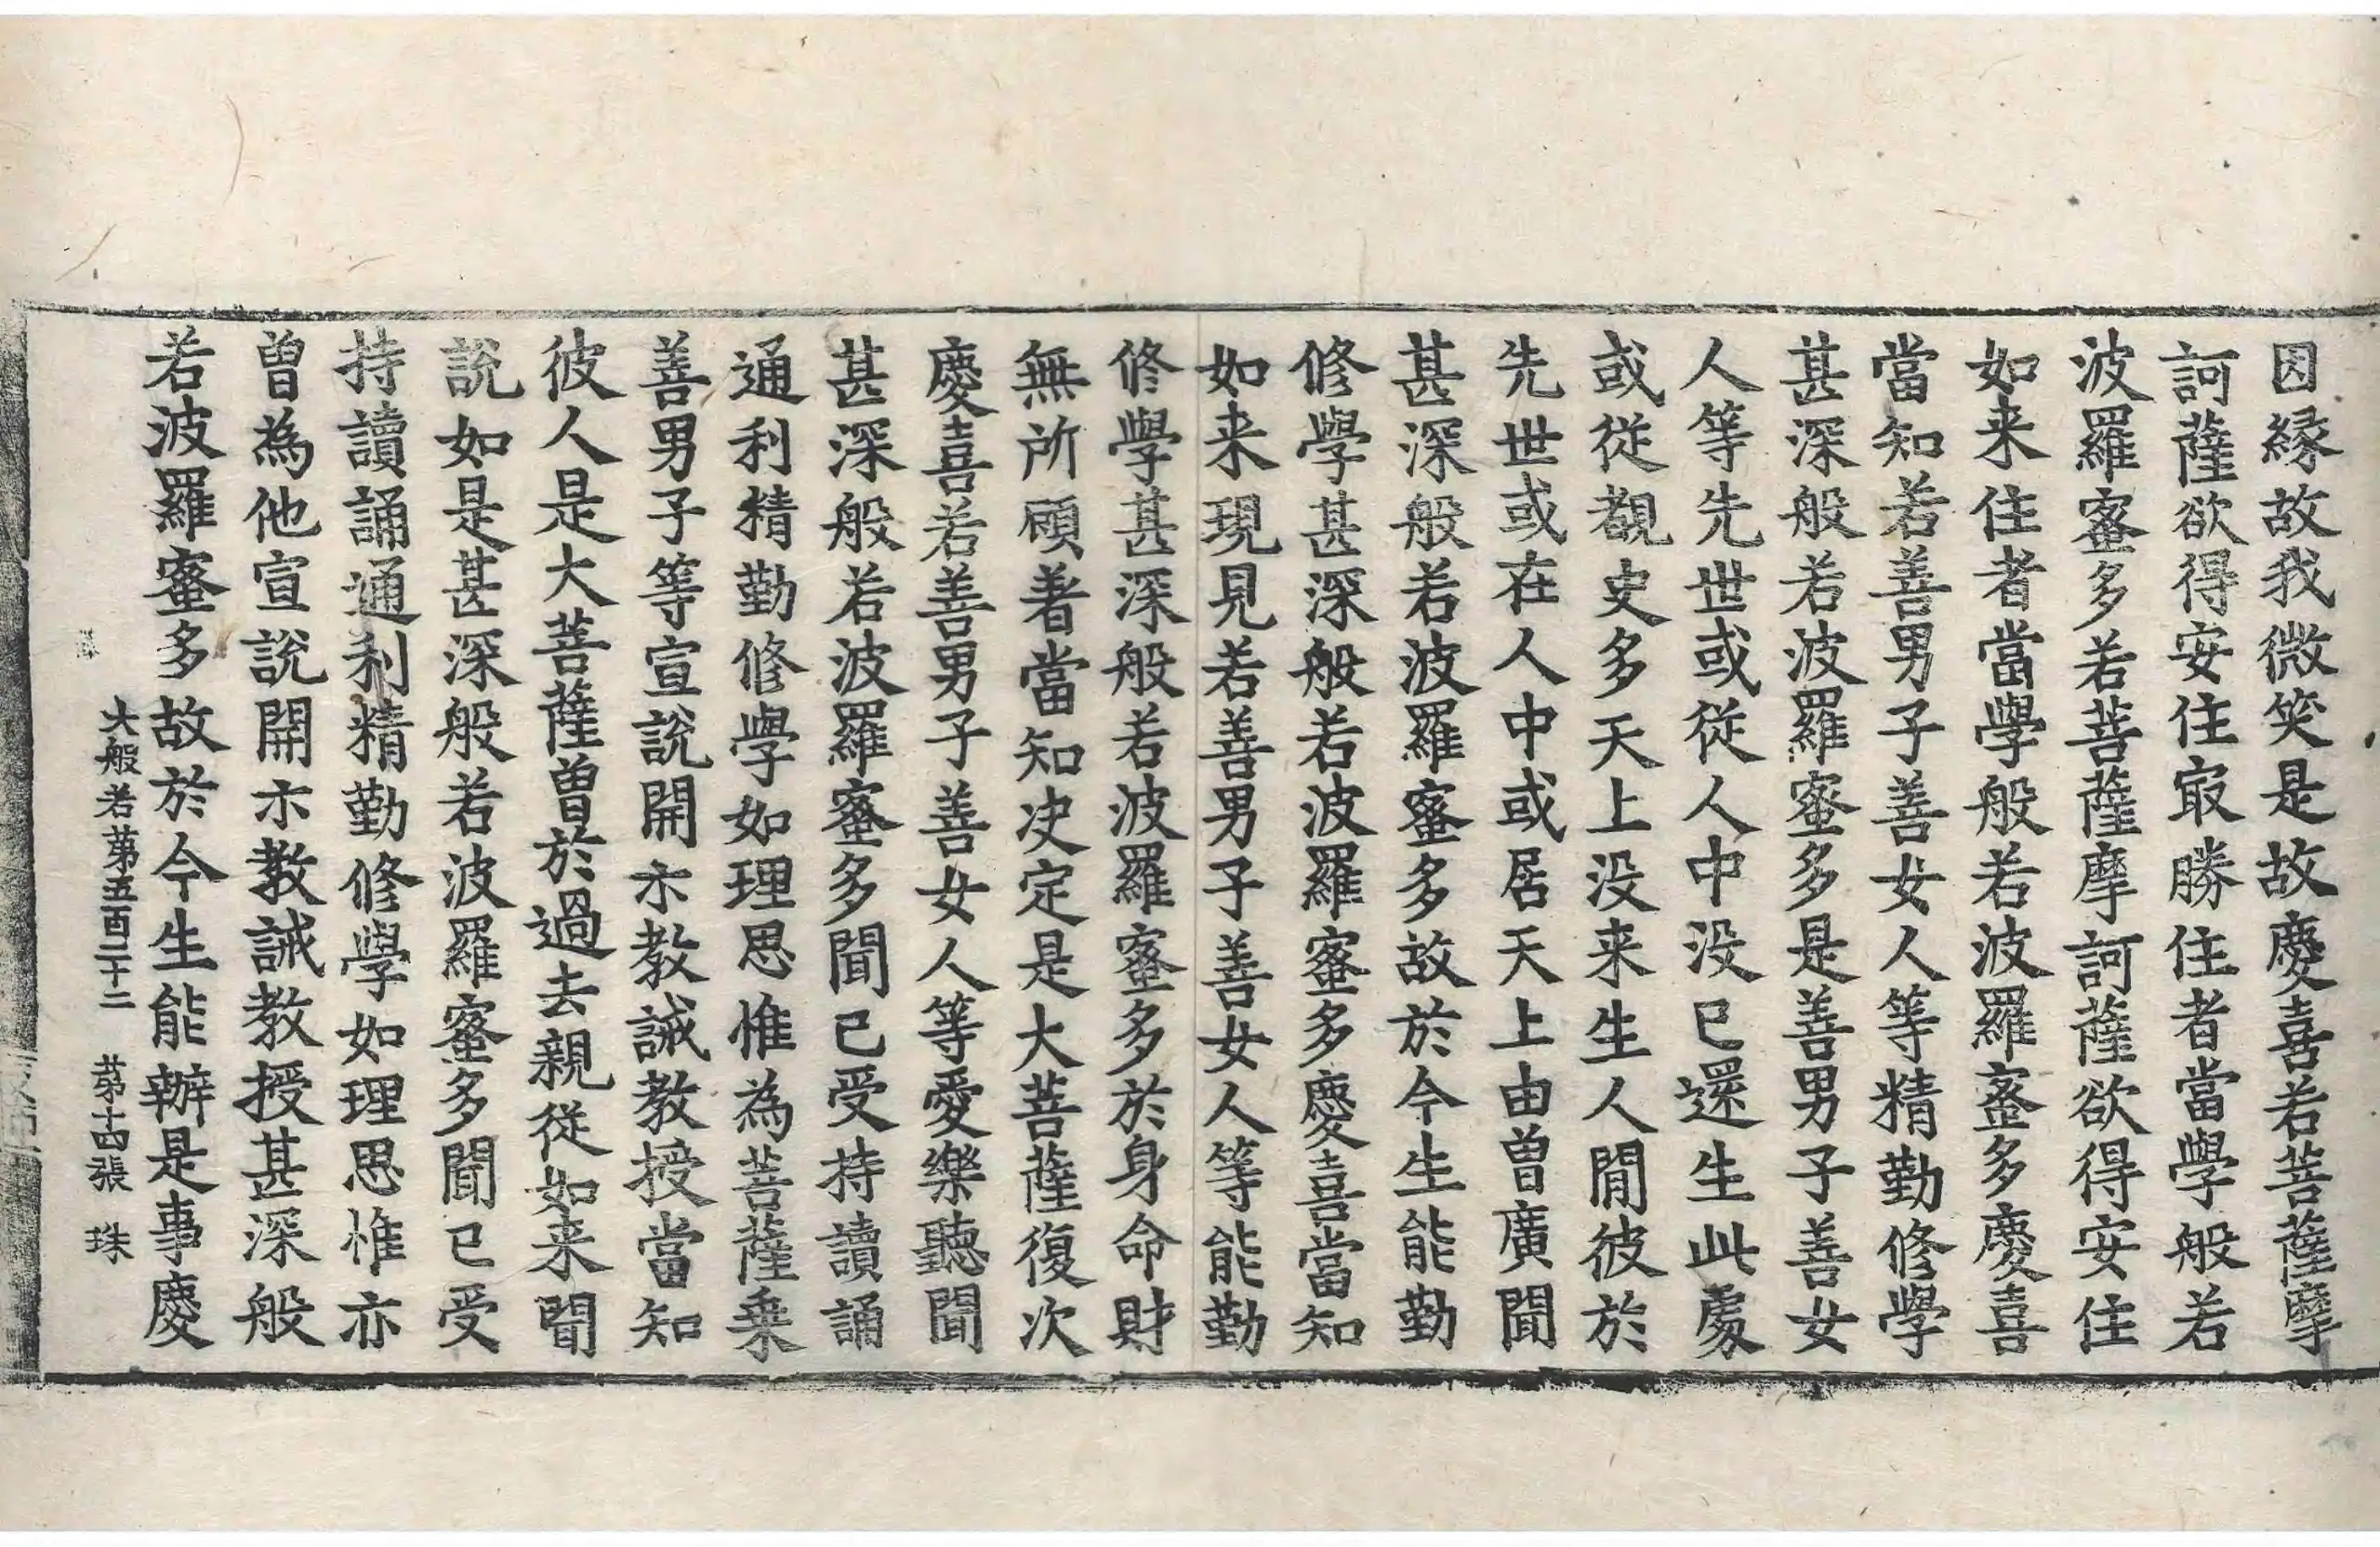 因縁故我微笑是故慶喜若菩薩摩
訶薩欲得安住㝡勝住者當學般若
波羅蜜多若菩薩摩訶薩欲得安住
如来住者當學般若波羅蜜多慶喜
當知若善男子善女人等精勤修學
甚深般若波羅蜜多是善男子善女
人等先世或従人中没已還生此處
或従覩史多天上没来生人閒彼於
先世或在人中或居天上由曽廣聞
甚深般若波羅蜜多故於今生能勤
修學甚深般若波羅蜜多慶喜當知
如来現見若善男子善女人等能勤
修學甚深般若波羅蜜多於身命財
無所顧著當知决定是大菩薩復次
慶喜若善男子善女人等愛樂聽聞
甚深般若波羅蜜多聞已受持讀誦
通利精勤修學如理思惟為菩薩乗
善男子等宣說開示教誡教授當知
彼人是大菩薩曽於過去親従如来聞
說如是甚深般若波羅蜜多聞已受
持讀誦通利精勤修學如理思惟亦
曽為他宣說開示教誡教授甚深般
若波羅蜜多故於今生能辦是事慶
大般若第五百二十二 第十四張 珠